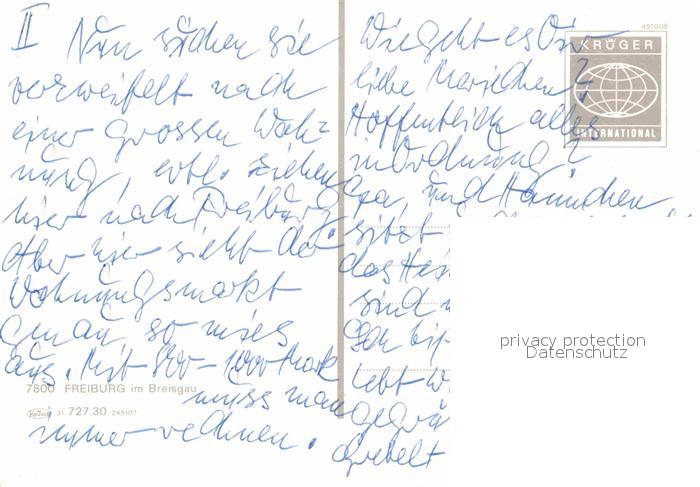 II Nun suchen sie
verzweifelt nach
einer grossen Woh=
nung, evtl. ziehen
hier nach Freiburg.
Aber hier sieht der
Wohnungsmarkt
genau so mies
aus. Mit 800 – 1000 Mark
muss man
immer rechnen.
7800 FREIBURG im Breisgau
31 727.30 245107
Wie geht es Dir
liebe Mariechen?
Hoffentlich alles
in Ordnung?
und Hännchen
sitzt
das
sind
lebt
491008
KRÜGER
INTERNATIONAL
privacy protection
Datenschutz